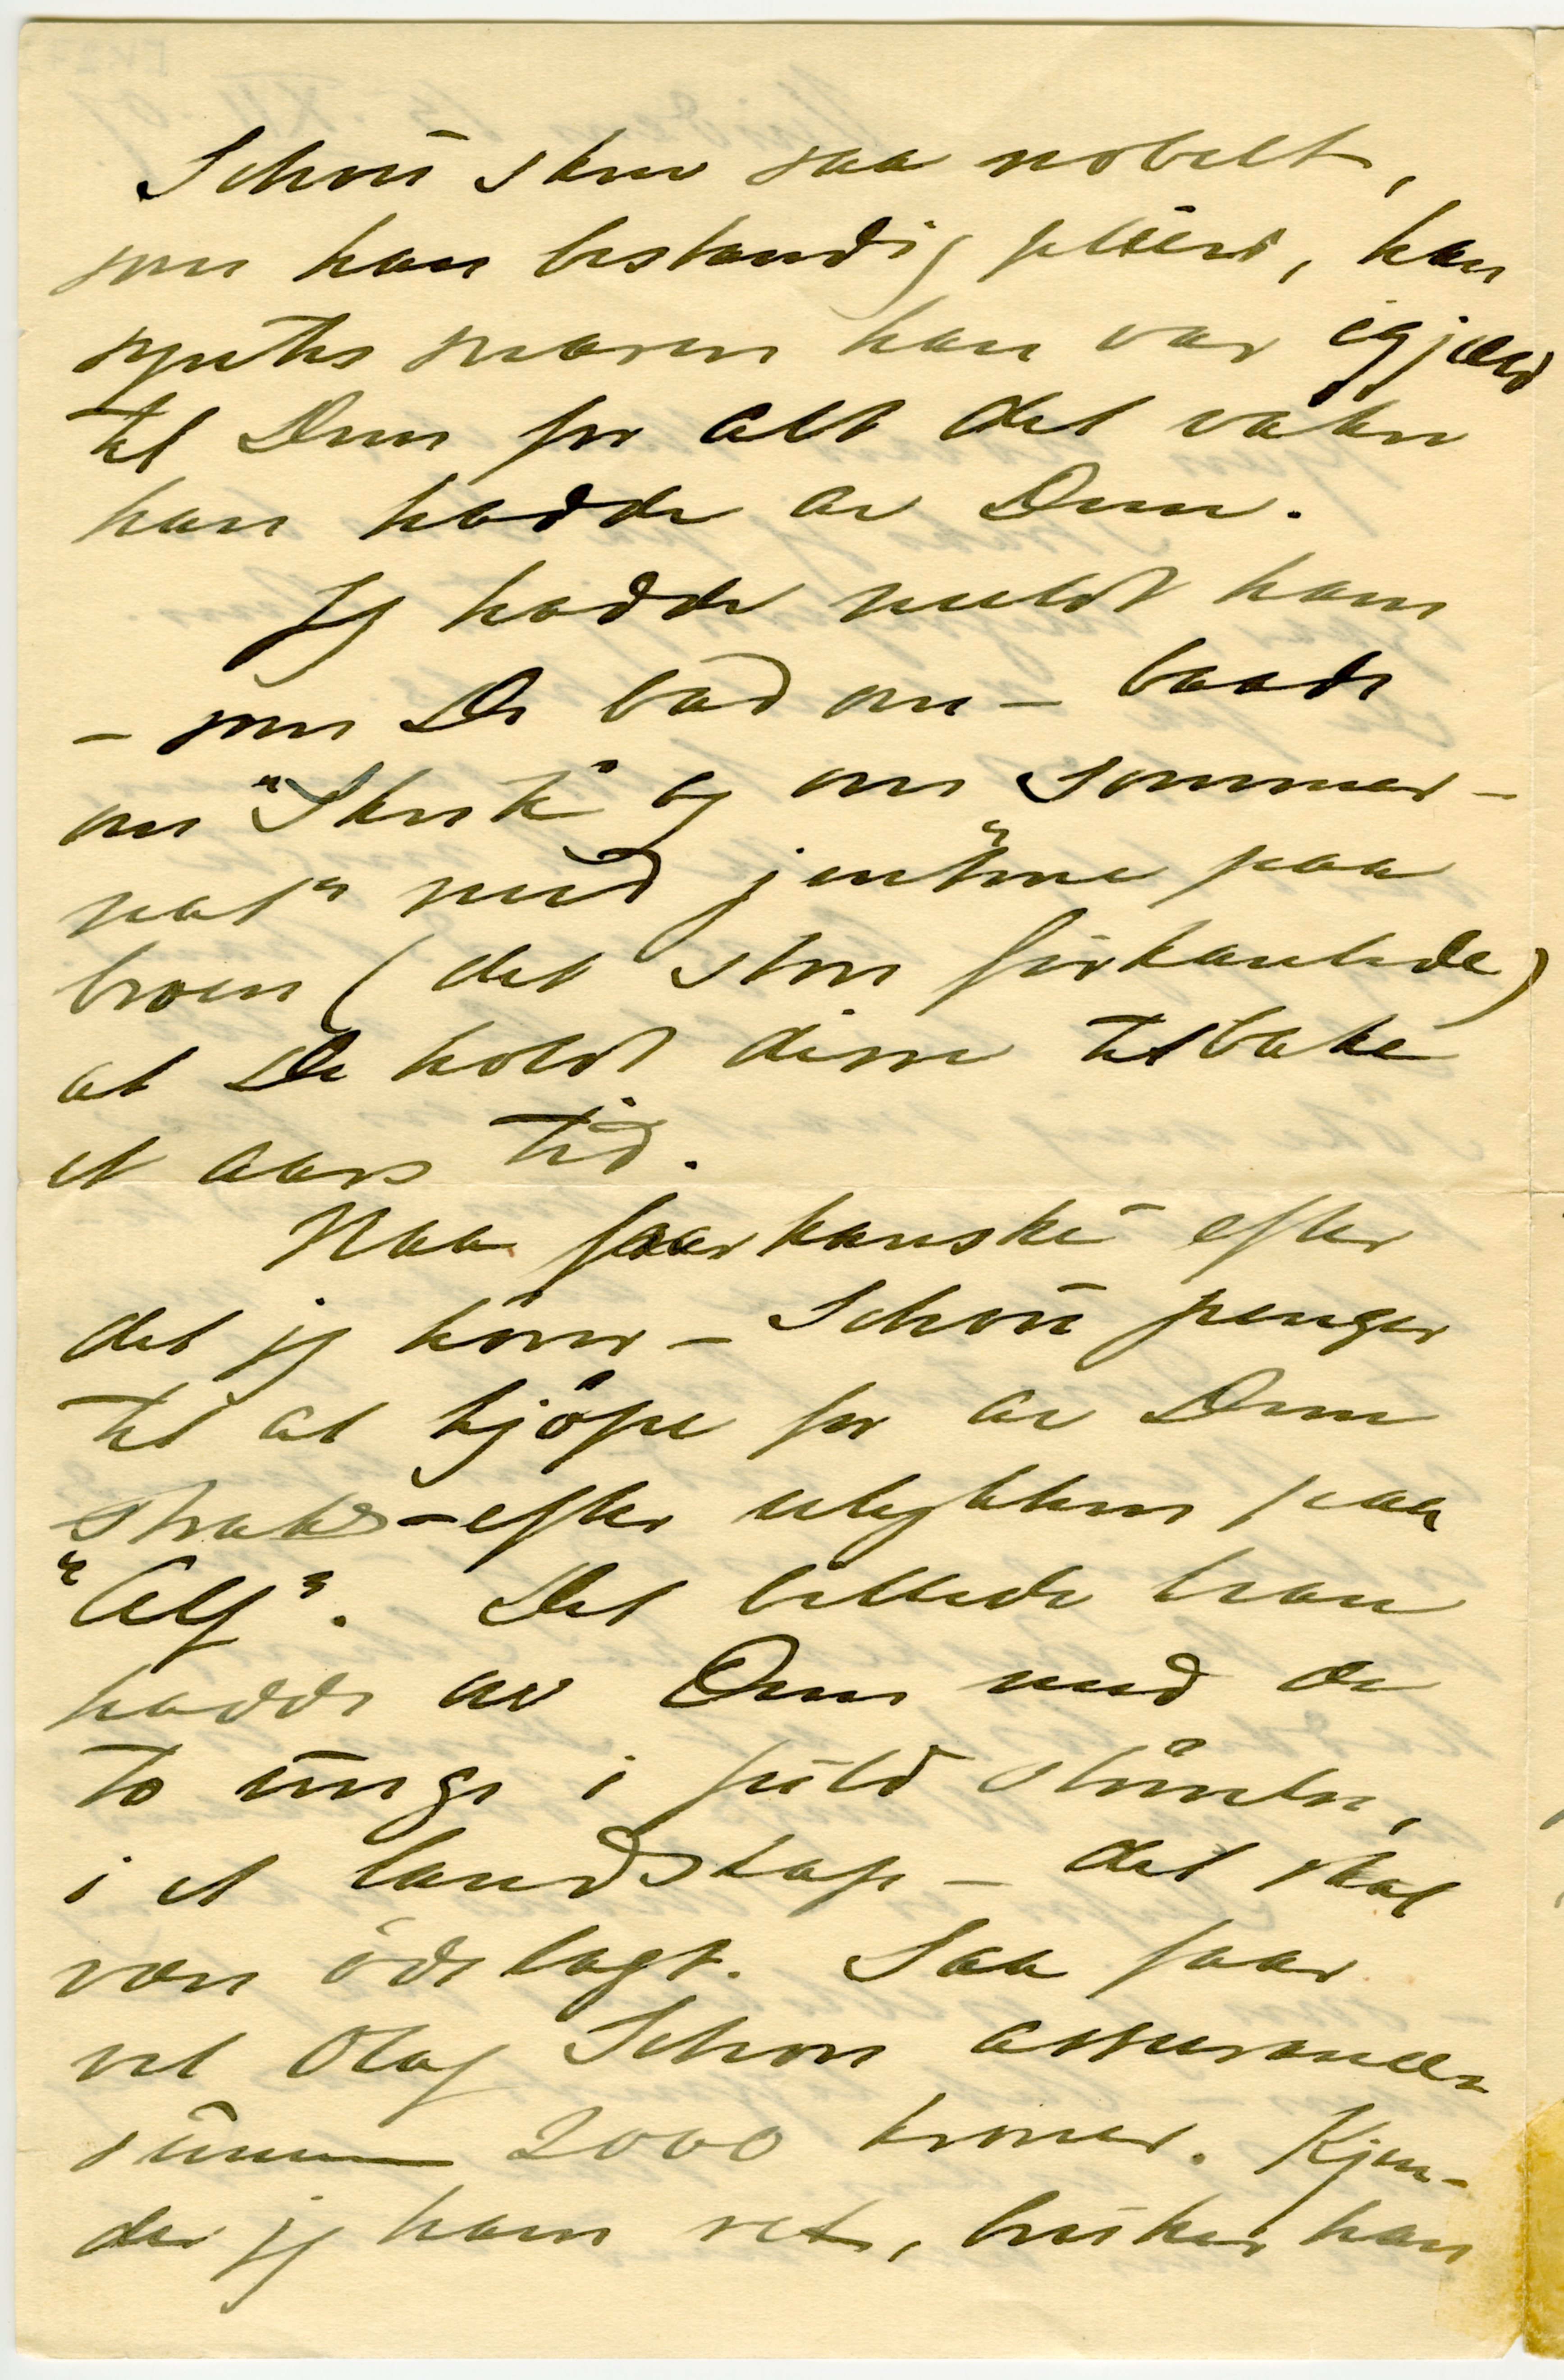 Schou skrev saa nobelt,
som han bestandig pleier, han
syntes snarere han var i gjæld
til Dem for alt det vakre
han hadde av Dem.
Jeg hadde meldt ham
– som De bad om – baade
om "Skrik" og om "Sommer-
nat" med jentene paa
broen (det store firkantede)
at De holdt disse tilbake
et aars tid.
Naa faar kanske efter
det jeg hører – Schou penger
til at kjöpe for av Dem
straks – efter ulykken paa
"Alf". Det billede han
hadde av Dem med de
to unge i fuld ,
i et landskap – det skal
være ödelagt. Saa faar
vel Olaf Schou assurance
summen 2000 kroner. Kjen-
der jeg ham ret, bruker han